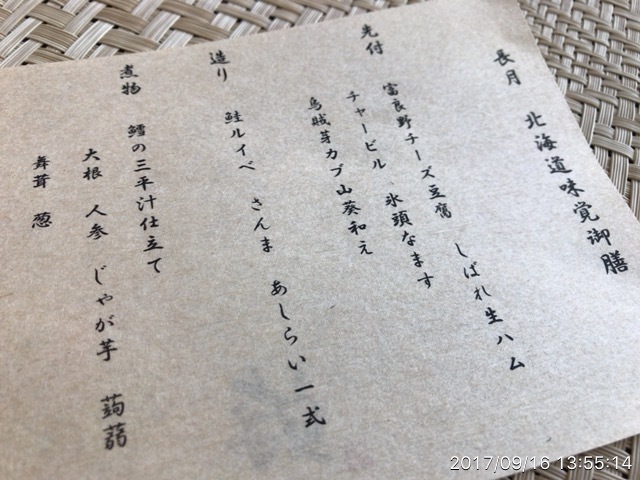 長月 北海道味覚御膳
先付 富良野チーズ豆腐 しばれ生ハム
チャービル 氷頭なます
烏賊芽カブ山葵和え
造り 鮭ルイベ さんま あしらい一式
煮物 鱈の三平汁仕立て
大根 人参 じゃが芋 蒟蒻
舞茸 葱
2017/09/16 13:55:14